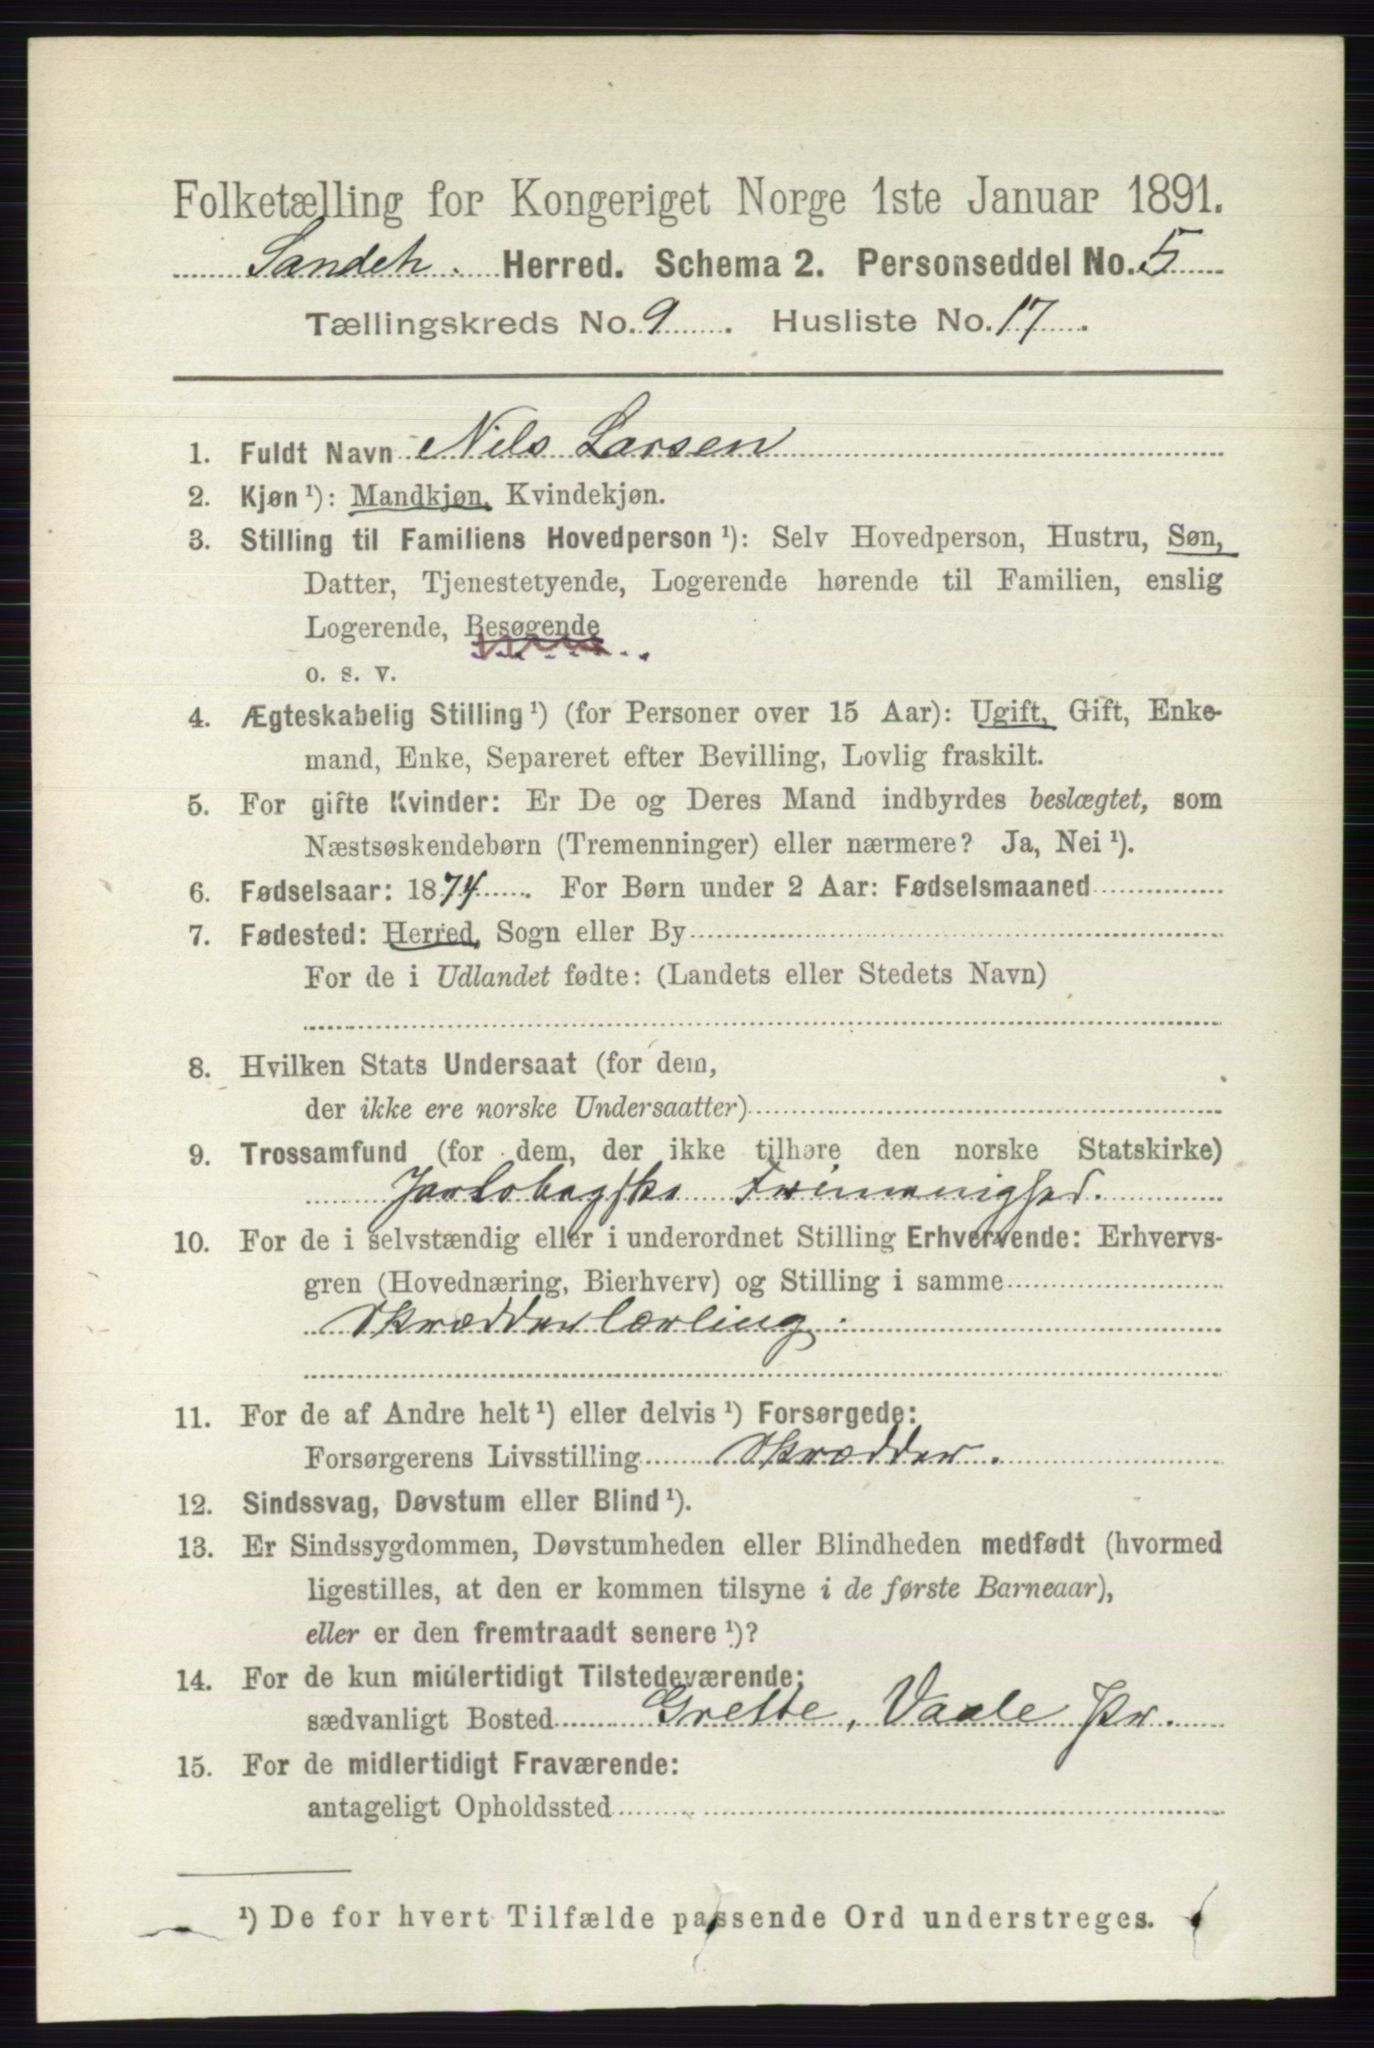 Folketælling for Kongeriget Norge 1ste Januar 1891.
Sandeh. Herred. Schema 2. Personseddel No. 5
Tællingskreds No. 9. Husliste No. 17.
1. Fuldt Navn Nils Larsen
2. Kjøn ¹): Mandkjøn, Kvindekjøn.
3. Stilling til Familiens Hovedperson ¹): Selv Hovedperson, Hustru, Søn,
Datter, Tjenestetyende, Logerende hørende til Familien, enslig
Logerende, Besøgende
o. s. v.
4. Ægteskabelig Stilling ¹) (for Personer over 15 Aar): Ugift, Gift, Enke-
mand, Enke, Separeret efter Bevilling, Lovlig fraskilt.
5. For gifte Kvinder: Er De og Deres Mand indbyrdes beslægtet, som
Næstsøskendebørn (Tremenninger) eller nærmere? Ja, Nei ¹).
6. Fødselsaar: 1874. For Børn under 2 Aar: Fødselsmaaned
7. Fødested: Herred, Sogn eller By
For de i Udlandet fødte: (Landets eller Stedets Navn)
8. Hvilken Stats Undersaat (for dem,
der ikke ere norske Undersaatter)
9. Trossamfund (for dem, der ikke tilhøre den norske Statskirke)
Jarlsbergske Frimenighed.
10. For de i selvstændig eller i underordnet Stilling Erhvervende: Erhvervs-
gren (Hovednæring, Bierhverv) og Stilling i samme
Skrædderlærling.
11. For de af Andre helt ¹) eller delvis ¹) Forsørgede:
Forsørgerens Livsstilling Skrædder.
12. Sindssvag, Døvstum eller Blind ¹).
13. Er Sindssygdommen, Døvstumheden eller Blindheden medfødt (hvormed
ligestilles, at den er kommen tilsyne i de første Barneaar),
eller er den fremtraadt senere ¹)?
14. For de kun midlertidigt Tilstedeværende:
sædvanligt Bosted Grette, Vaale Pr.
15. For de midlertidigt Fraværende:
antageligt Opholdssted
¹) De for hvert Tilfælde passende Ord understreges.